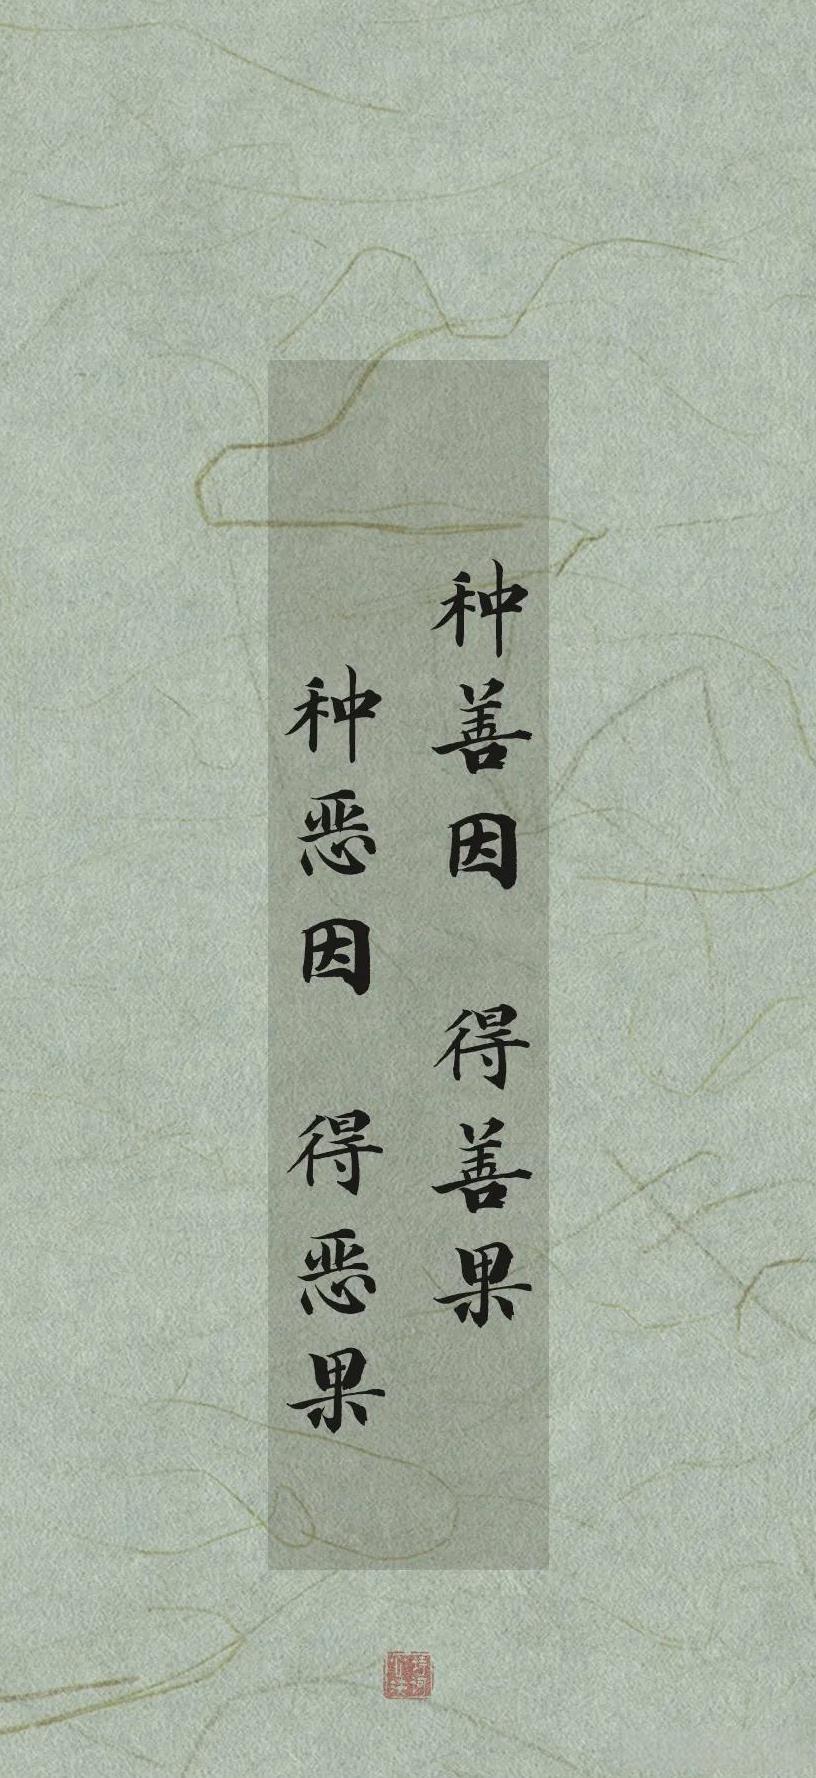 种善因 得善果
种恶因 得恶果